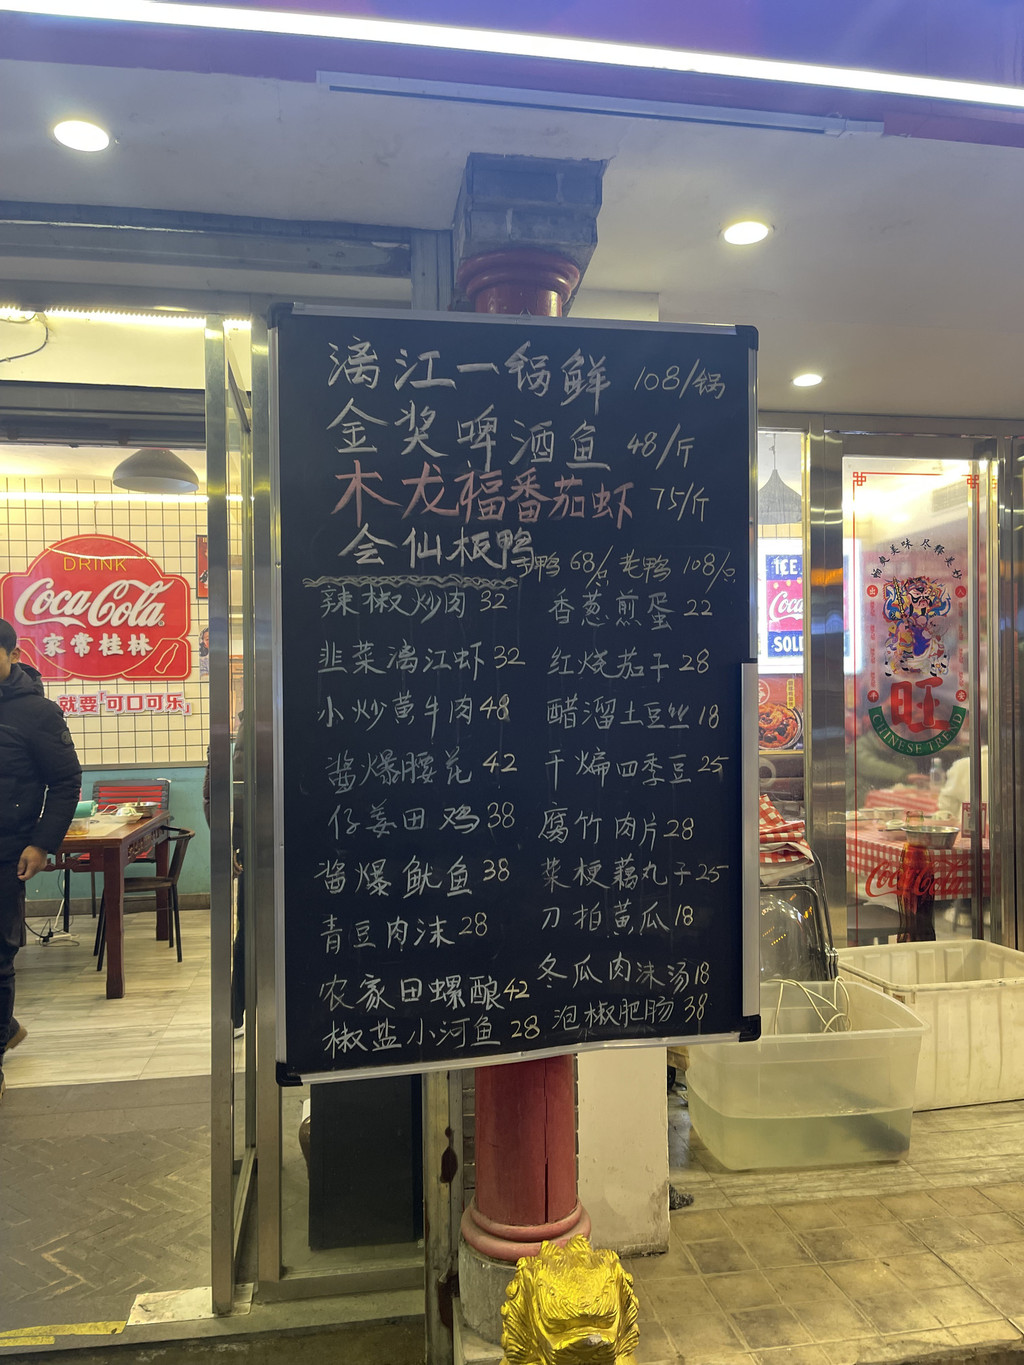 漓江一锅鲜 108/锅
金奖啤酒鱼 48/斤
木龙福番茄虾 75/斤
会仙板鸭 子鸭 68/只 老鸭 108/只
辣椒炒肉 32
韭菜漓江虾 32
小炒黄牛肉 48
酱爆腰花 42
仔姜田鸡 38
酱爆鱿鱼 38
青豆肉沫 28
农家田螺酿 42
椒盐小河鱼 28
香葱煎蛋 22
红烧茄干 28
醋溜土豆丝 18
干煸四季豆 25
腐竹肉片 28
菜梗藕丸子 25
刀拍黄瓜 18
冬瓜肉沫汤 18
泡椒肥肠 38
DRINK
Coca-Cola
家常桂林
就要「可口可乐」
ICE
Coca
SOLD
畅爽美味 尽释美妙
旺
CHINESE TREND
Coca-Cola